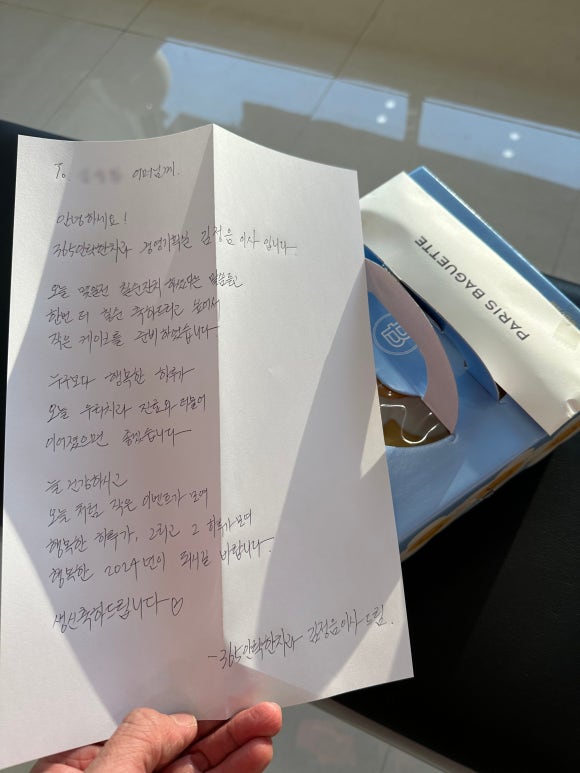 To. 어머님께.
안녕하세요!
365안락한치과 경영기획실 김정음 이사 입니다.
오늘 몇일전 칠순잔치 하셨다는 말씀듣고
한번 더 칠순 축하드리고 싶어서
작은 케이크를 준비하였습니다.
누구보다 행복한 하루가
오늘 우리치과 진료와 더불어
이어졌으면 좋겠습니다
늘 건강하시고
오늘 처럼 작은 이벤트가 모여
행복한 하루가, 그리고 그 하루가 모여
행복한 2024년이 되시길 바랍니다.
생신축하드립니다 ♡
- 365안락한치과 김정음이사 드림.
PARIS BAGUETTE